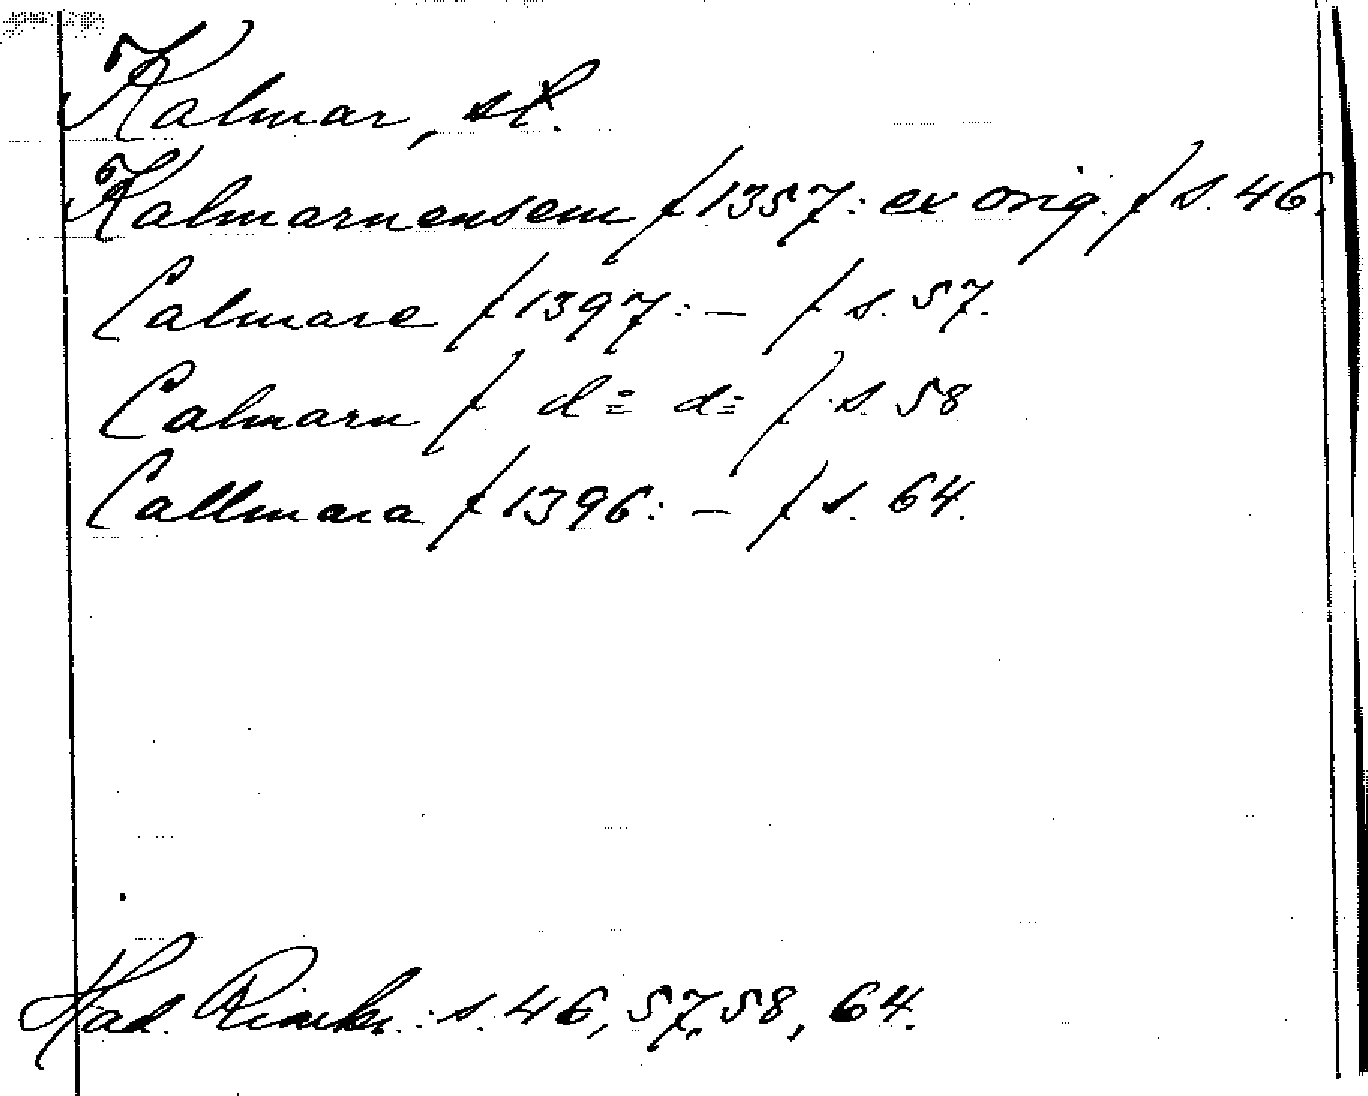 Kalmar, st.
Kalmarnensem /1357: ex orig. / s. 46.
Calmare /1397: — / s. 57.
Calmarn / d:= d:= / s. 58
Callmara /1396: — / s. 64.
Had. Rimkr.: s. 46, 57, 58, 64.